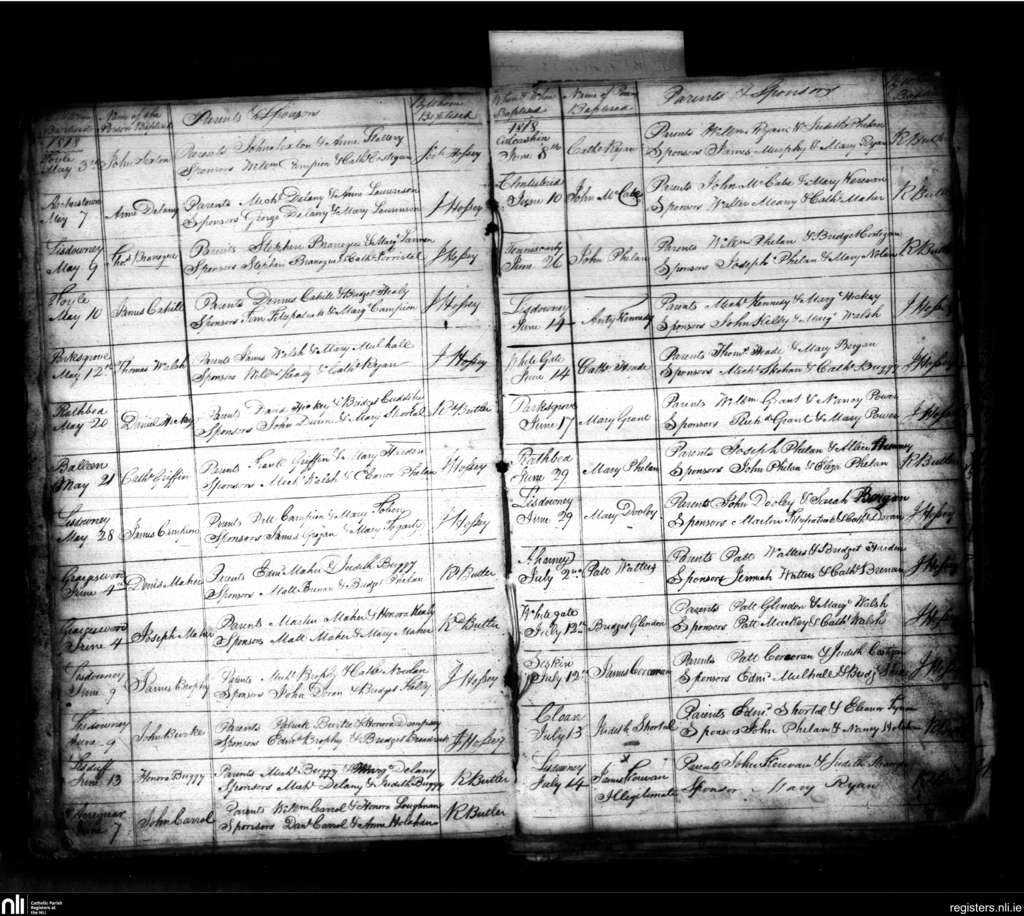 When & Where Baptized
Name of the Person Baptized
Parents & Sponsors
By Whom Baptized
1818
Foyle
May 3rd
John Sexton
Parents John Sexton & Anne Slattery
Sponsors Willm Campion & Cath Costigan
May 7
Anne Delany
Parents Michl Delany & Anne Laurenson
Sponsors George Delany & Mary Laurenson
J Hossey
Lisdowney
May 9
Parents Stephen Branegue & Margt
Sponsors Stephen Branegue & Cath
J Hossey
Foyle
May 10
James Cahill
Parents Dennis Cahill & Bridget Healy
Sponsors Tim Fitzpatrick & Margt Campion
J Hossey
Parksgrove
May 12th
Thomas Walsh
Parents James Walsh & Mary Mulhall
Sponsors Willm Keady & Cath Ryan
J Hossey
Rathbea
May 20
Daniel Hickey
Parents David Hickey & Bridget Cuddihy
Sponsors John Divine & Mary Shortal
Rd Butler
Balleen
May 21
Cath Griffin
Parents Frank Griffin & Mary Harden
Sponsors Michl Walsh & Elleanor Phelan
J Hossey
Lisdowney
May 28
James Campion
Parents Campion & Mary Tobin
Sponsors James Grogan & Mary Fogarty
J Hossey
June 4
Denis Maher
Parents Edmd Maher & Judith Buggy
Sponsors Matt Brenan & Bridget Phelan
R Butler
June 4
Joseph Maher
Parents Martin Maher & Honora Healy
Sponsors Matt Maher & Mary Maher
Rd Butler
Lisdowney
June 9
James Brophy
Parents Michl Brophy & Cathe Nowlan
Sponsors John Doran & Bridget Kelly
J Hossey
Lisdowney
June 9
John Burke
Parents Patrick Burke & Honora Dempsey
Sponsors Edmd Brophy & Bridget
J Hossey
Lisduff
June 13
Honora Buggy
Parents Michl Buggy & Margt Delany
Sponsors Michl Delany & Judith Buggy
R Butler
June 7
John Carrol
Parents Willm Carrol & Honora Loughman
Sponsors Danl Carrol & Anne Holahan
R Butler
When & Where Baptized
Name of Person Baptized
Parents & Sponsors
1818
Coolcashin
June 8th
Cath Ryan
Parents Willm Ryan & Judith Phelan
Sponsors James Murphy & Mary Ryan
R Butler
June 10
John McCabe
Parents John McCabe & Mary Kerevan
Sponsors Walter Meany & Cath Maher
R Butler
June 26
John Phelan
Parents Willm Phelan & Bridget Costigan
Sponsors Joseph Phelan & Mary Nolan
R Butler
Lisdowney
June 14
Anty Kennedy
Parents Michl Kennedy & Margt Hickey
Sponsors John Kelly & Margt Walsh
J Hossey
White Gate
June 14
Cathe Meade
Parents Thoms Meade & Mary Bergan
Sponsors Michl Skehan & Cath Buggy
J Hossey
Parksgrove
June 17
Mary Grant
Parents Willm Grant & Nancy Power
Sponsors Richd Grant & Mary Power
J Hossey
Rathbea
June 29
Mary Phelan
Parents Joseph Phelan & Alice
Sponsors John Phelan & Eliza Phelan
R Butler
Lisdowney
June 29
Mary Dooley
Parents John Dooley & Sarah Bergan
Sponsors Martin Fitzpatrick & Cath Doran
J Hossey
Aharney
July 2nd
Patt Watters
Parents Patt Watters & Bridget Harden
Sponsors Jermiah Watters & Cath Brenan
J Hossey
White gate
July 12th
Bridget Glendon
Parents Patt Glendon & Margt Walsh
Sponsors Patt Mackey & Cath Walsh
J Hossey
Seskin
July 12th
James Corcoran
Parents Patt Corcoran & Judith Costigan
Sponsors Edmd Mulhall & Bridgt
J Hossey
Cloan
July 13
Judith Shortal
Parents Edmd Shortal & Eleanor
Sponsors John Phelan & Nancy Holahan
Lisdowney
July 14
James Kerevan
Illegitimate
Parents John Kerevan & Judith
Sponsor Mary Ryan
nli
Catholic Parish
Registers at
the NLI
registers.nli.ie